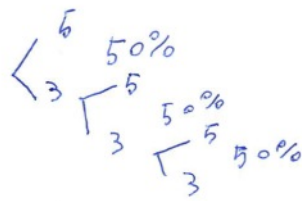 5
50%
3 5
50%
3 5
50%
3